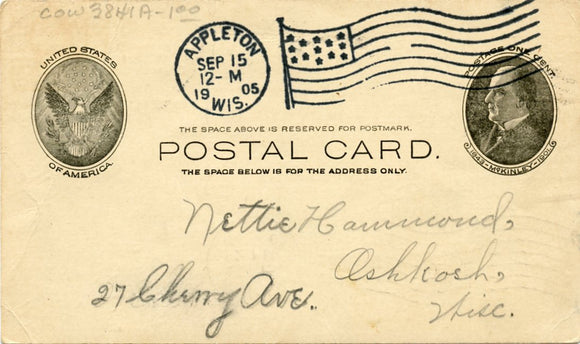 COW 3841A-1.00
APPLETON
SEP 15
12-M
19 05
WIS.
UNITED STATES
OF AMERICA.
POSTAGE ONE CENT.
1843-McKINLEY-1901.
THE SPACE ABOVE IS RESERVED FOR POSTMARK.
POSTAL CARD.
THE SPACE BELOW IS FOR THE ADDRESS ONLY.
Nettie Hammond,
Oshkosh,
27 Cherry Ave. Wisc.